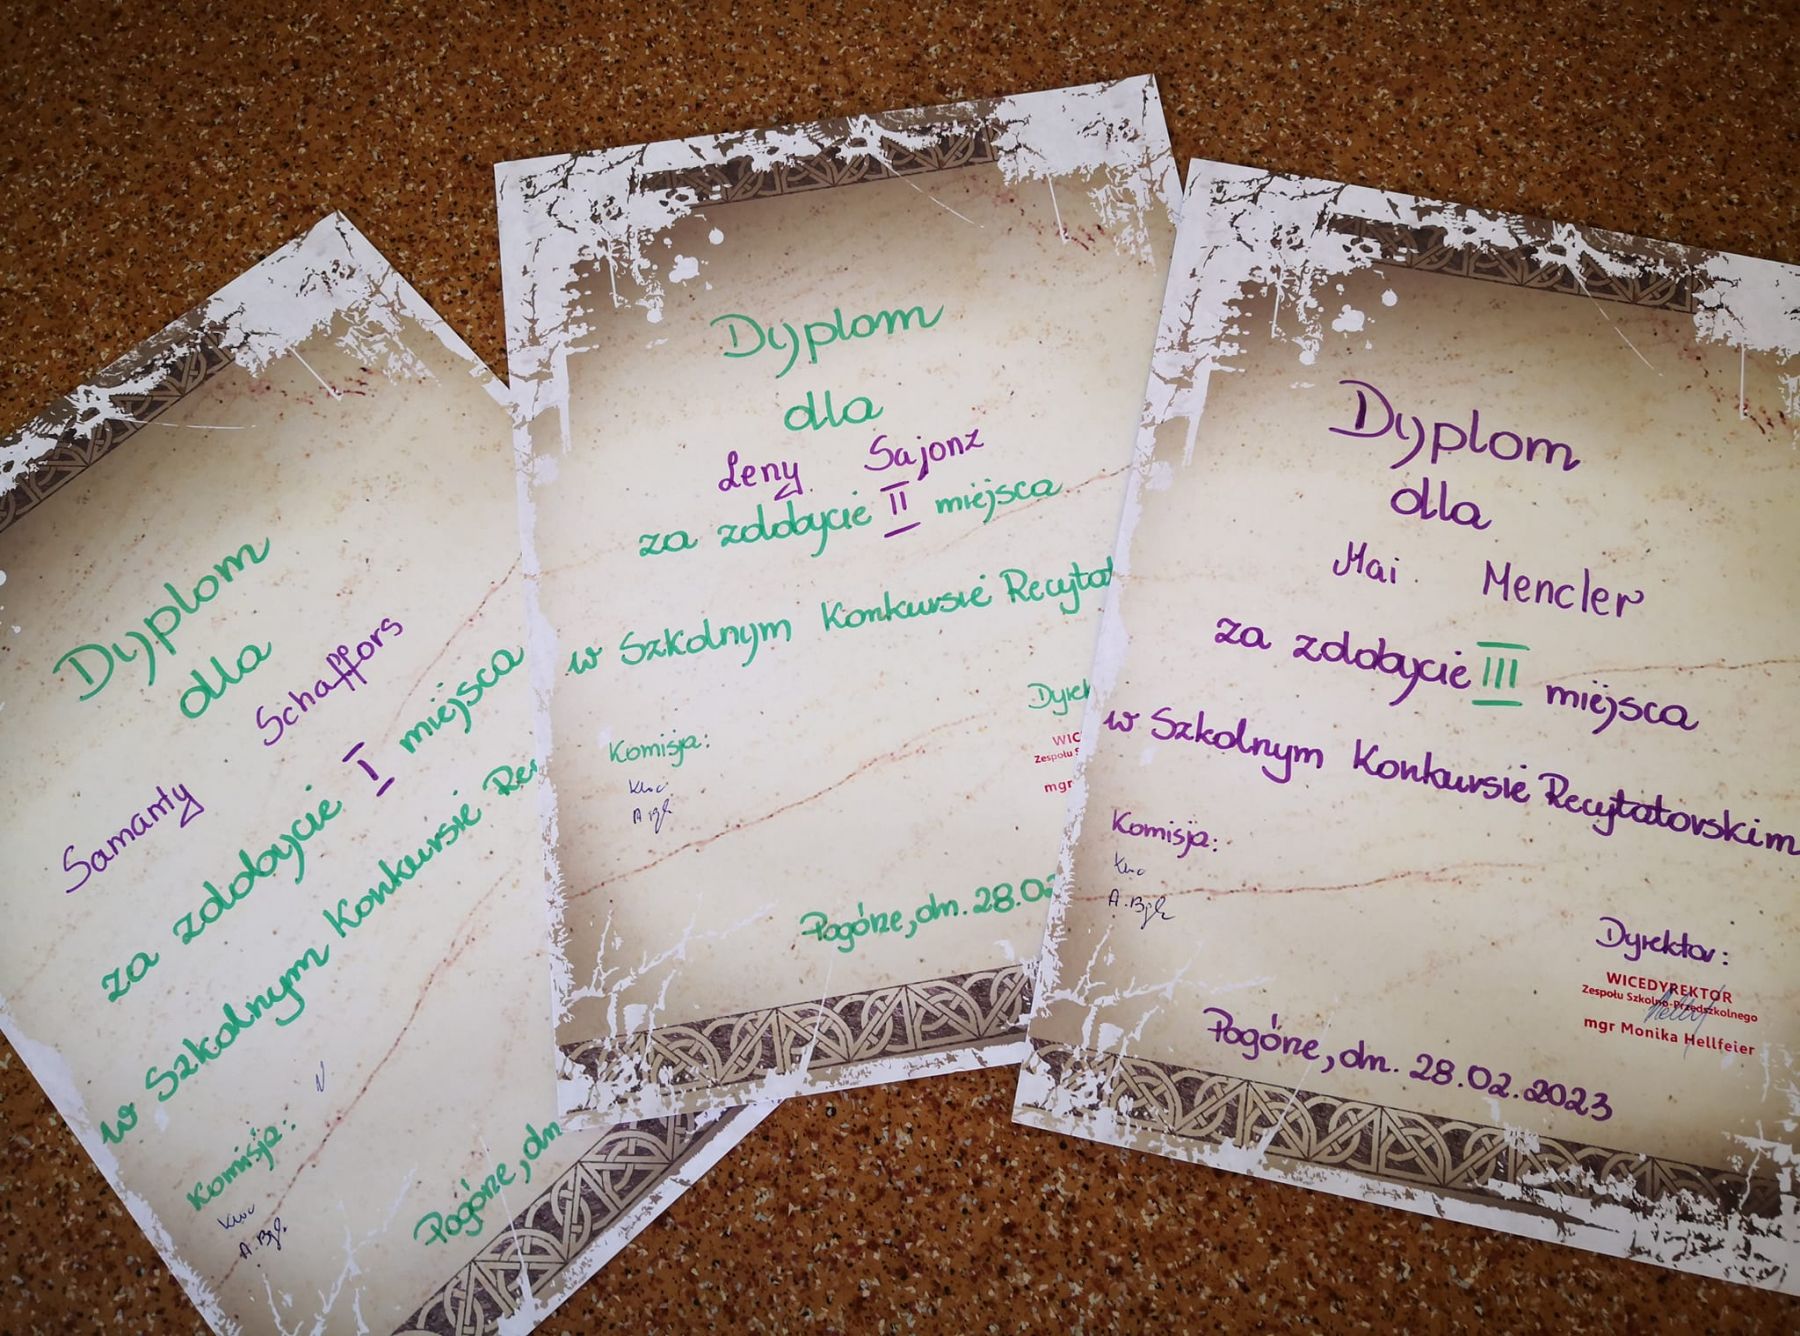 Dyplom
dla
Samanty Schaffors
za zdobycie I miejsca
w Szkolnym Konkursie
Komisja:
Pogórze, dn
Dyplom
dla
Leny Sajonz
za zdobycie II miejsca
w Szkolnym Konkursie Recytat
Dyrek
Komisja:
WIC
Zespołu S
mgr
Pogórze, dn. 28.02
Dyplom
dla
Mai Mencler
za zdobycie III miejsca
w Szkolnym Konkursie Recytatorskim
Komisja:
Dyrektor:
WICEDYREKTOR
Zespołu Szkolno-Przedszkolnego
mgr Monika Hellfeier
Pogórze, dn. 28.02.2023